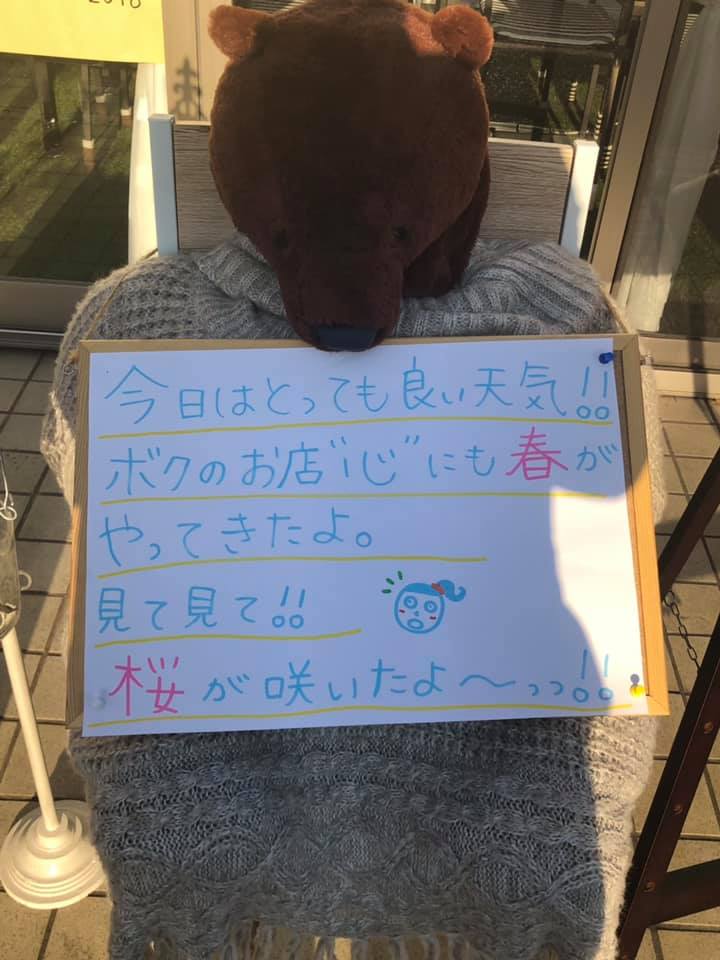 2018
今日はとっても良い天気!!
ボクのお店"iじ"にも春が
やってきたよ。
見て見て!!
桜が咲いたよ〜っっ!!